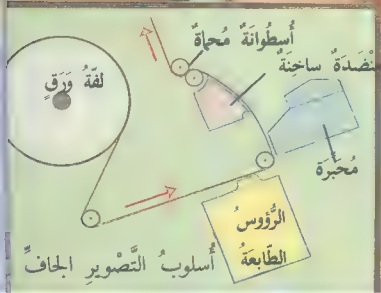 أُسطُوانَةٌ مُحماةٌ
لفّةُ وَرَقٍ
ساخِنَةٌ
مُحبَرَة
الرُّؤُوسُ
الطّابعَةُ
أُسلوبُ التَّصْويرِ الجافِّ